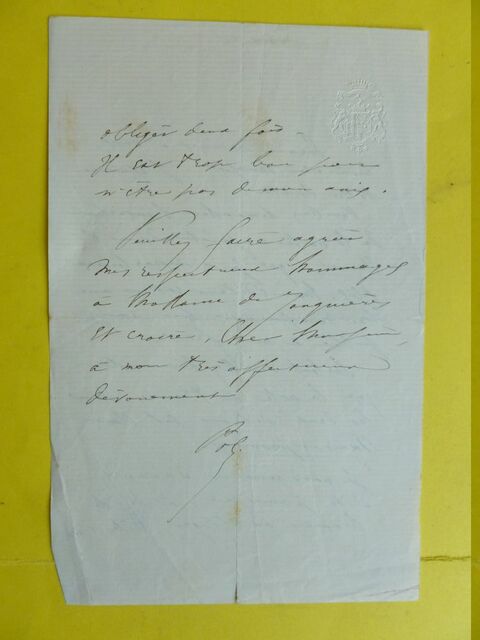 obliger deux fois.
Il est trop bon pour
n'être pas de mon avis.
Veuillez faire agréer
mes respectueux hommages
à Madame de Jonquières
et croire, cher Monsieur,
à mon très affectueux
dévouement